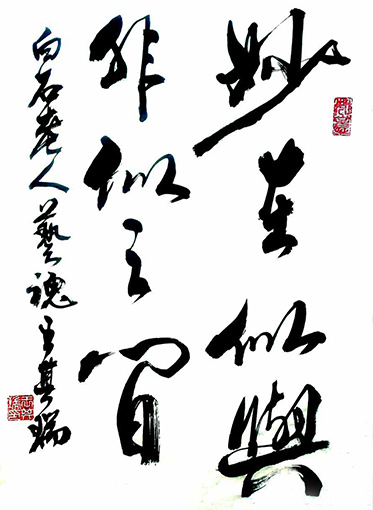 妙在似與
非似之間
白石老人藝魂王其瑞